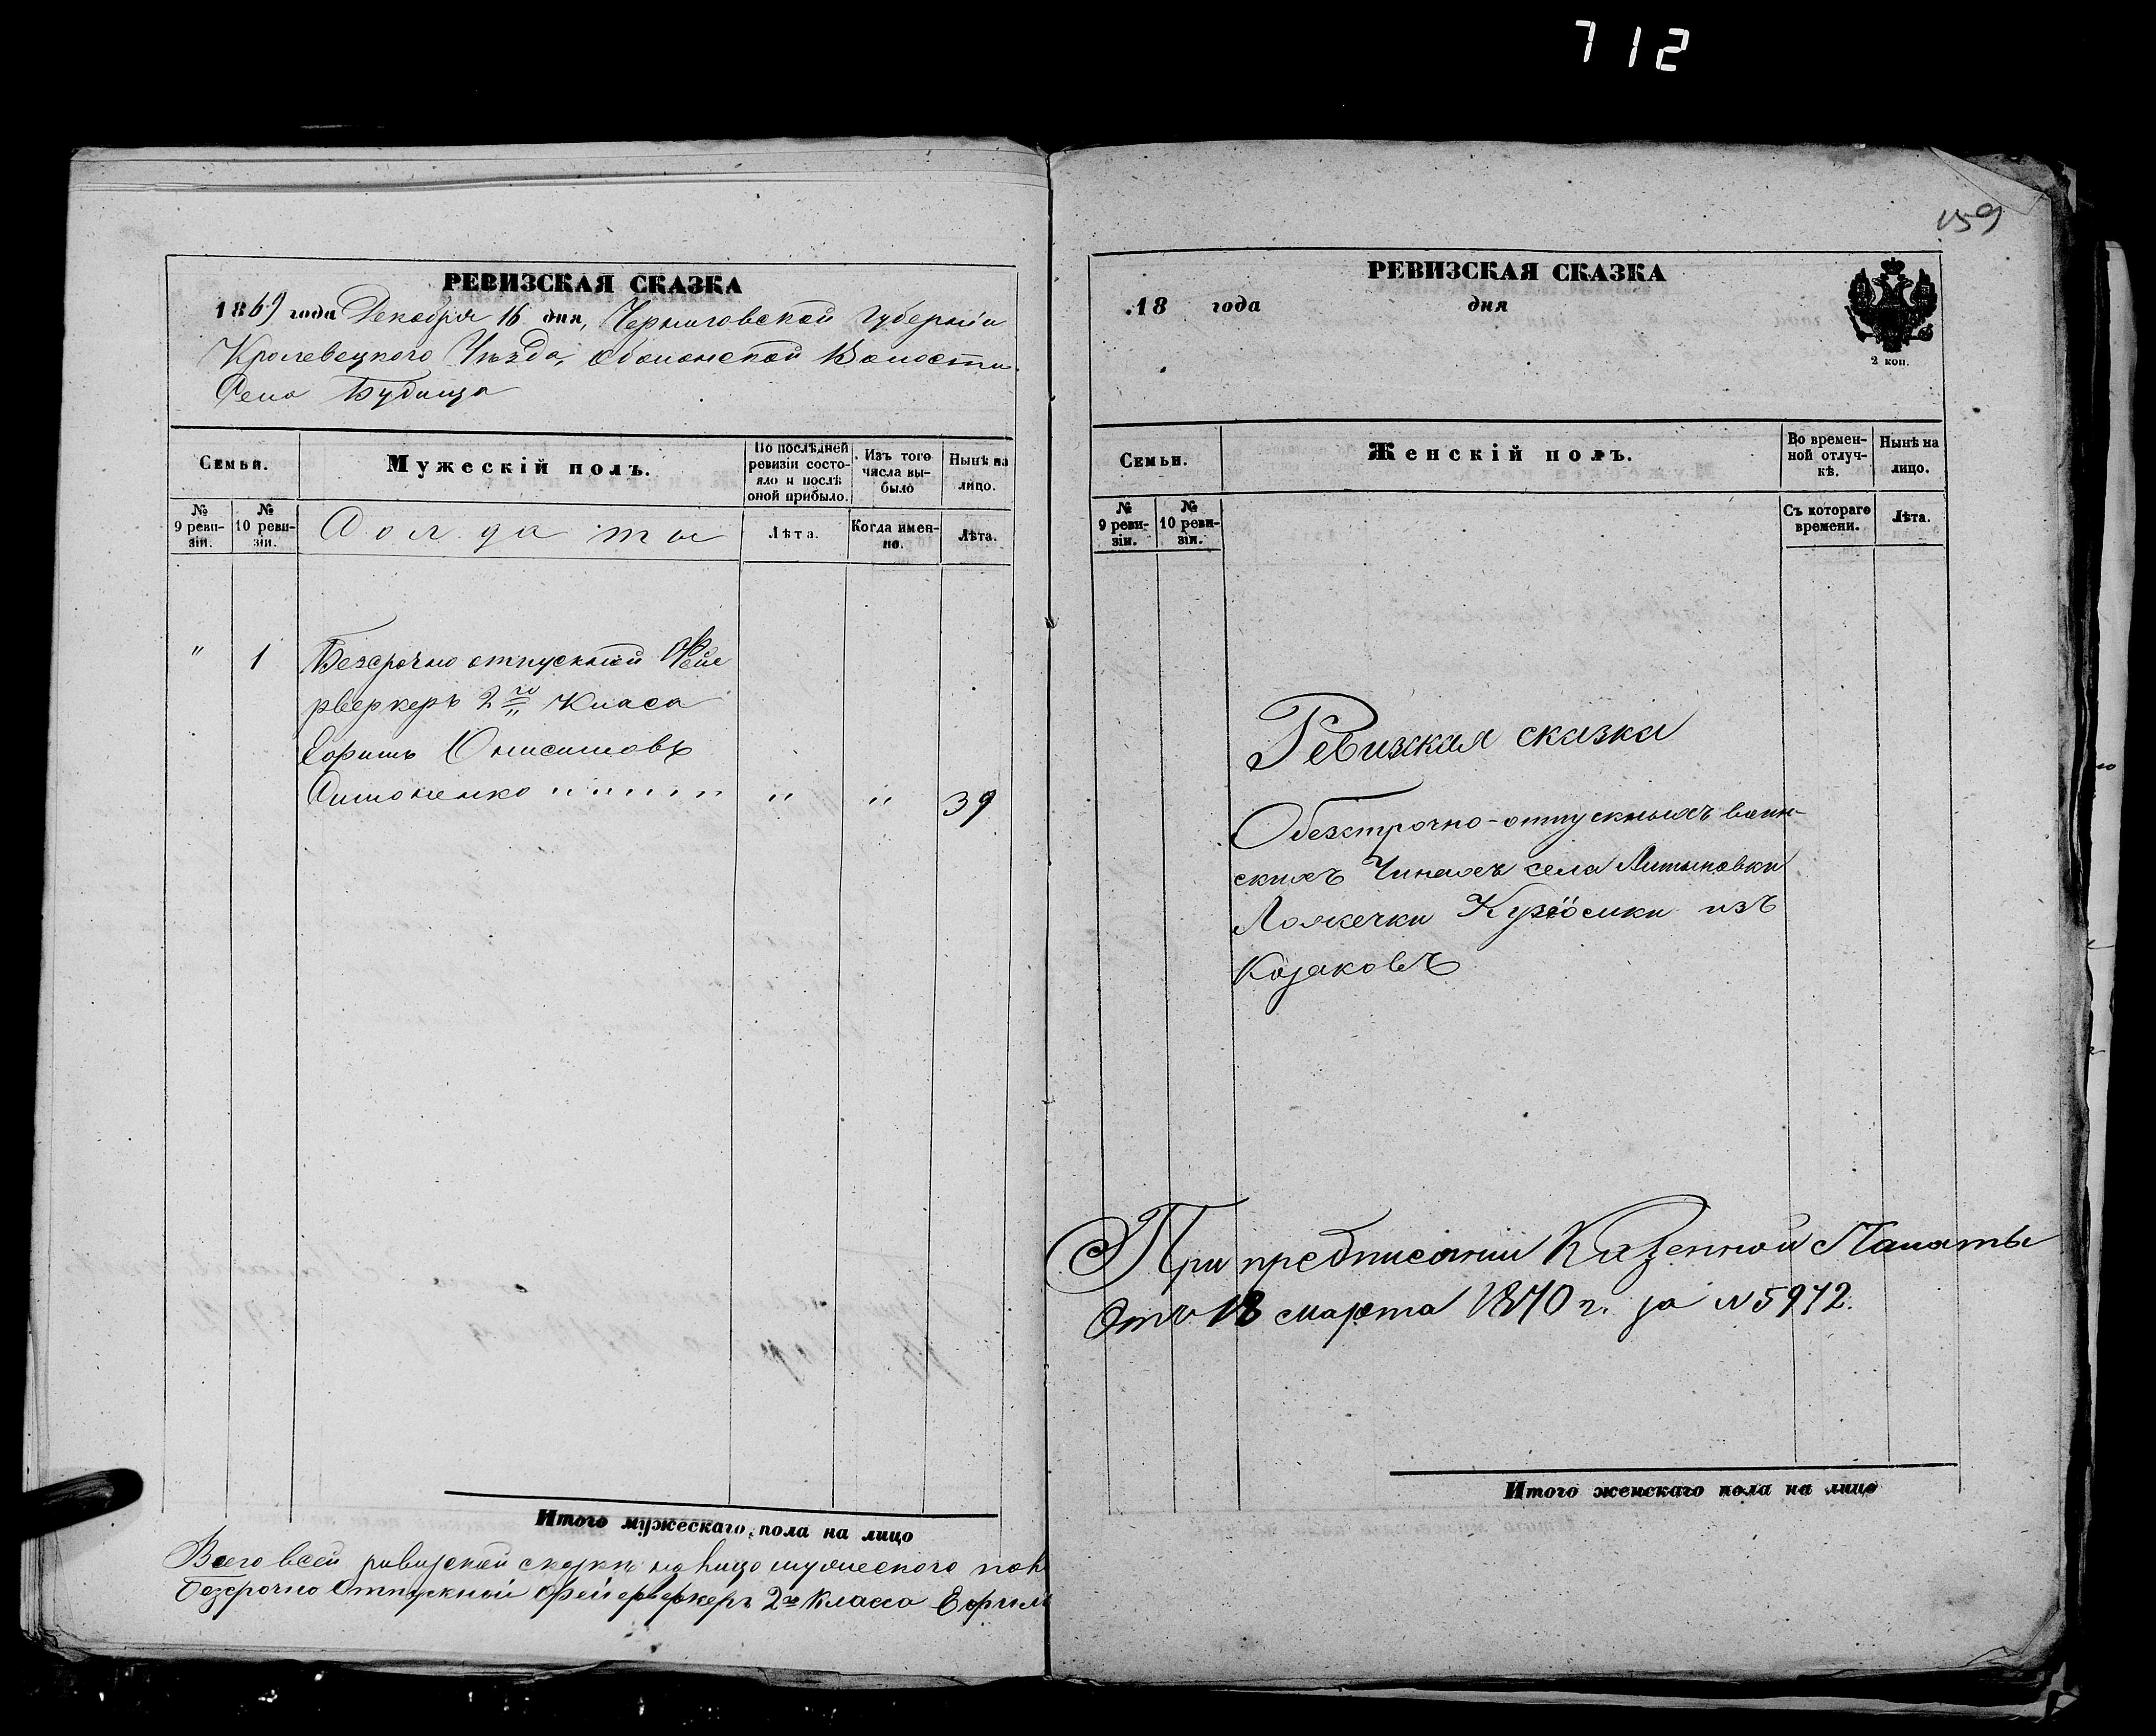 712
РЕВИЗСКАЯ СКАЗКА
1869 года Декабря 16 дня, Черниговской Губерніи
Кролевецкого Уѣзда, Обложской Волости
Село Будища
Семьи.
Мужескій полъ.
По послѣдней ревизіи состояло и послѣ оной прибыло.
Изъ того числа выбыло
Нынѣ на лицо.
№ 9 ревизіи.
№ 10 ревизіи.
Солдаты
Лѣта.
Когда именно.
Лѣта.
" 1 Безсрочно отпускной Фейе
рверкеръ 2го Класа
Ефимъ Онисимовъ
Симоненко " " " " " " " " 39
Итого мужескаго пола на лицо
Всего всей ревизской сказки на лицо мужеского пол
Безсрочно Отпускной Фейерверкеръ 2го Класса Ефим
159
РЕВИЗСКАЯ СКАЗКА
18 года дня
2 коп.
Семьи.
Женскій полъ.
Во временной отлучкѣ.
Нынѣ на лицо.
№ 9 ревизіи.
№ 10 ревизіи.
Съ котораго времени.
Лѣта.
Ревизкая сказка
О безстрочно-отпускныхъ воин-
скихъ Чинахъ села
изъ
Козаковъ
При предписаніи Казенной Палаты
Отъ 18 марта 1870 г. за N 5972.
Итого женскаго пола на лицо